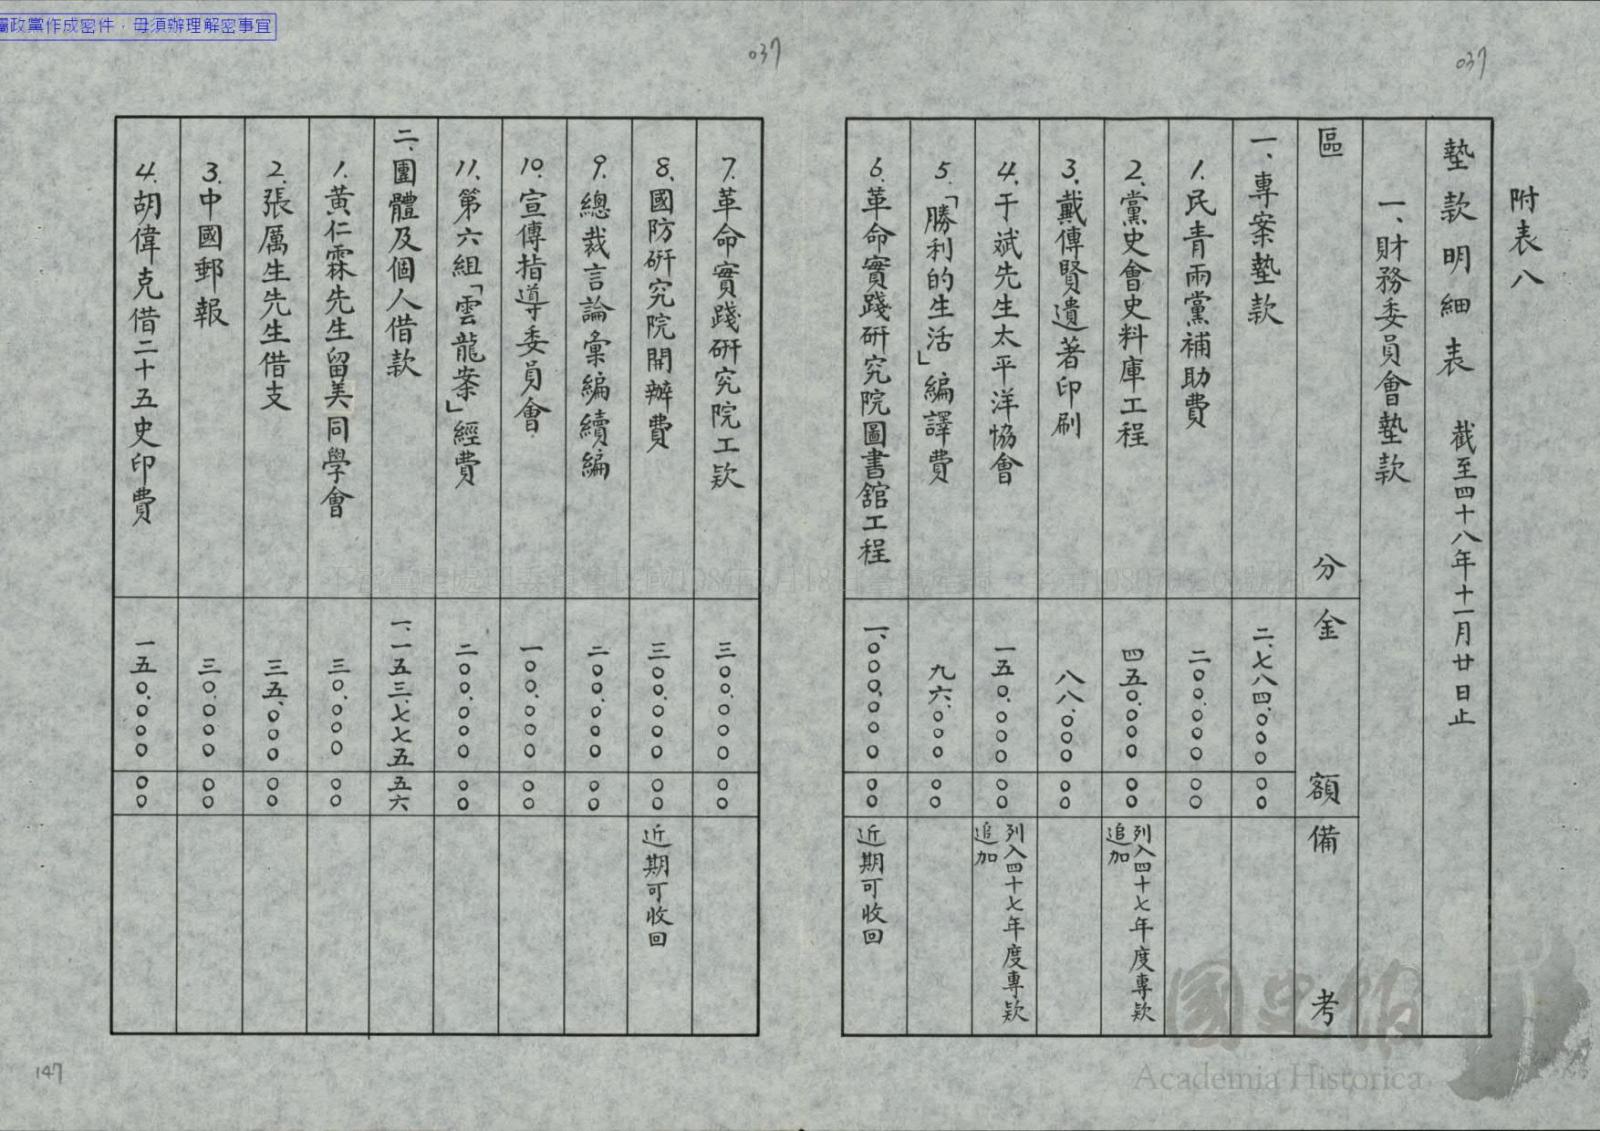 屬政黨作成密件，毋須辦理解密事宜
037
037
附表八
墊款明細表 截至四十八年十一月廿日止
一、財務委員會墊款
區分 金額 備考
一、專案墊款 二、七八四、〇〇〇 〇〇
1.民青兩黨補助費 二〇〇、〇〇〇 〇〇
2.黨史會史料庫工程 四五〇、〇〇〇 〇〇 列入四十七年度專款追加
3.戴傳賢遺著印刷 八八、〇〇〇 〇〇
4.于斌先生太平洋協會 一五〇、〇〇〇 〇〇 列入四十七年度專款追加
5.「勝利的生活」編譯費 九六、〇〇〇 〇〇
6.革命實踐研究院圖書舘工程 一、〇〇〇、〇〇〇 〇〇 近期可收回
7.革命實踐研究院工款 三〇〇、〇〇〇 〇〇
8.國防研究院開辦費 三〇〇、〇〇〇 〇〇 近期可收回
9.總裁言論彙編續編 二〇〇、〇〇〇 〇〇
10.宣傳指導委員會 一〇〇、〇〇〇 〇〇
11.第六組「雲龍案」經費 二〇〇、〇〇〇 〇〇
二、團體及個人借款 一、一五三、七七五 五六
1.黃仁霖先生留美同學會 三〇、〇〇〇 〇〇
2.張厲生先生借支 三五、〇〇〇 〇〇
3.中國郵報 三〇、〇〇〇 〇〇
4.胡偉克借二十五史印費 一五〇、〇〇〇 〇〇
147
國史館
Academia Historica